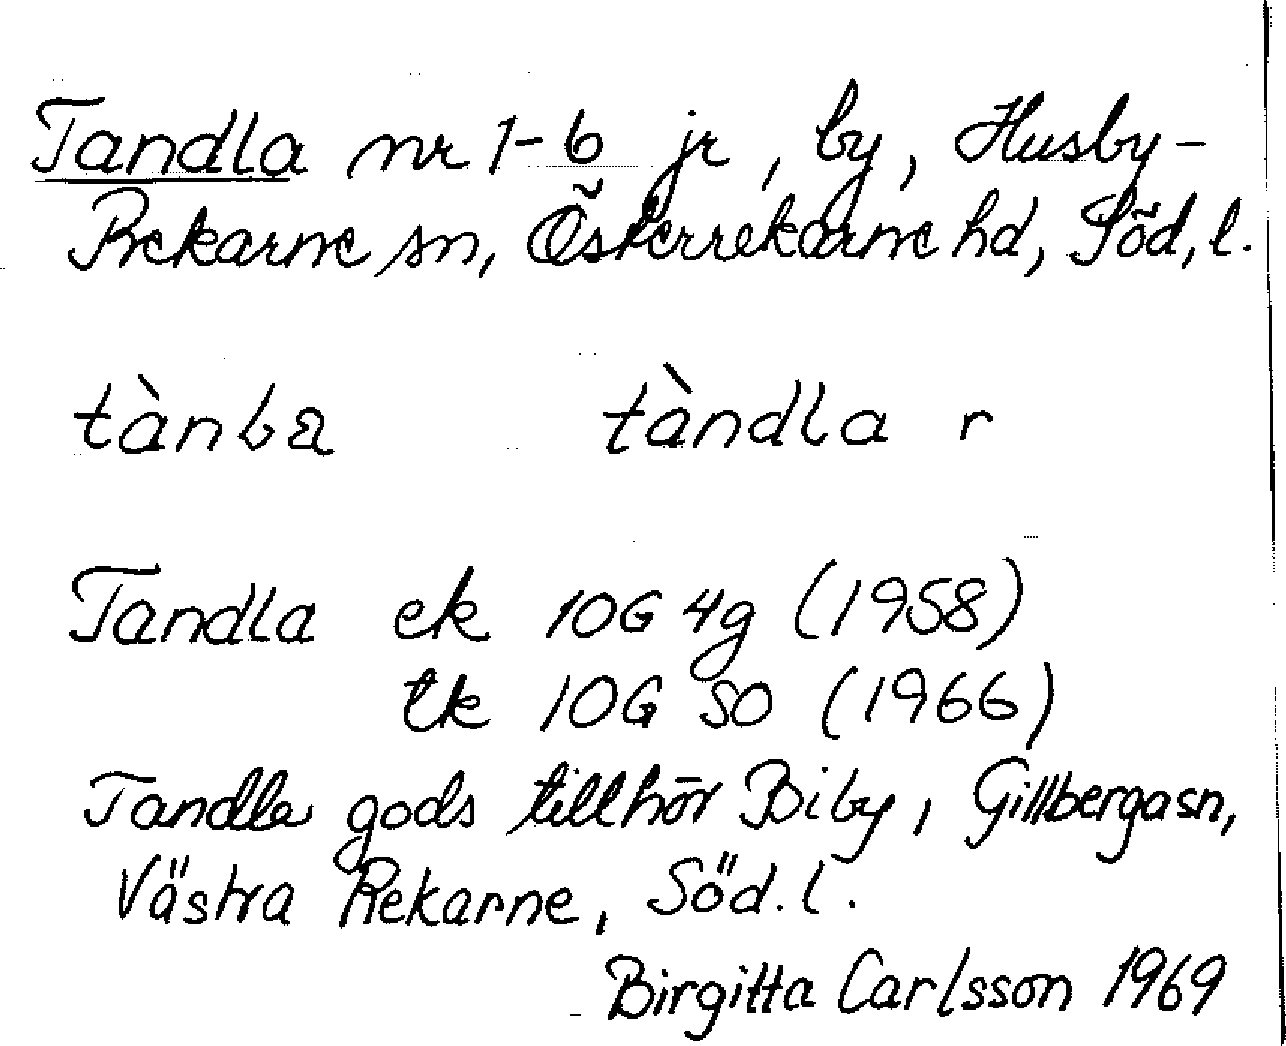 Tandla nr 1-6 jr, by, Husby-
Rekarne sn, Österrekarne hd, Söd, l.
tàndla r
Tandla ek 10G 4g (1958)
tk 10G SO (1966)
Tandla gods tillhör Biby, Gillberga sn,
Västra Rekarne, Söd. l.
Birgitta Carlsson 1969